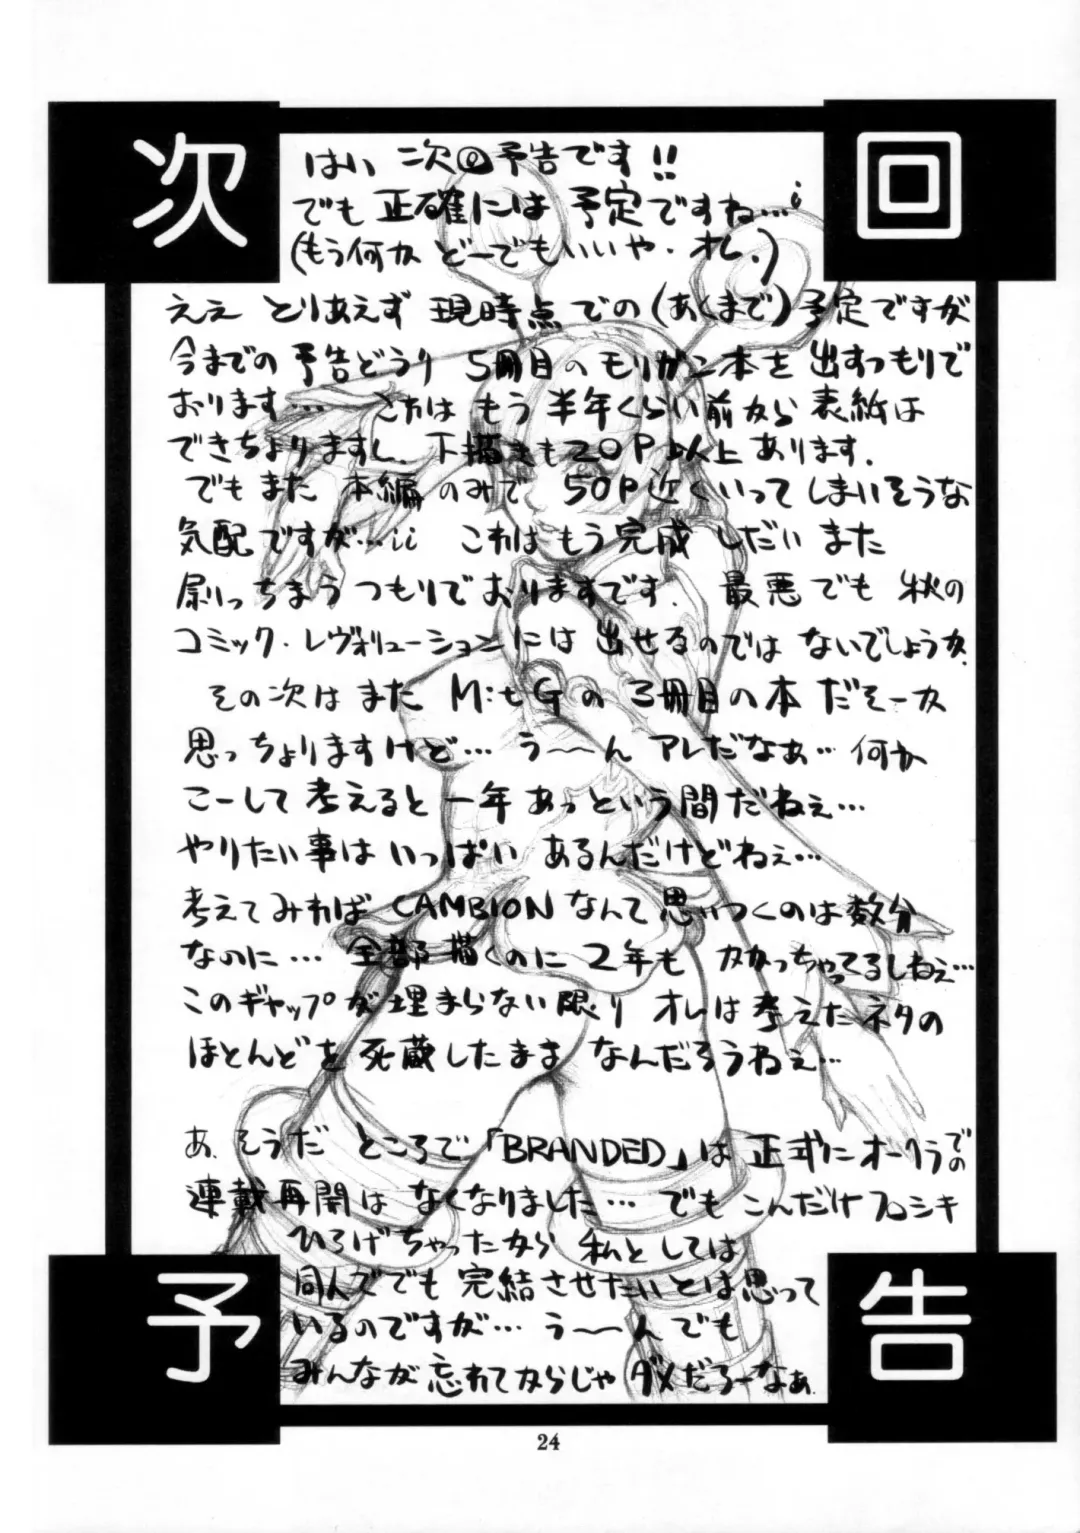 次回
はい 次回予告です!!
でも 正確には 予定ですね…;
(もう何か どーでもいいや・オレ。)
ええ とりあえず 現時点での(あくまで)予定ですが
今までの 予告どうり 5冊目のモリガン本を 出すつもりで
おります… これは もう 半年くらい前から 表紙は
できちょりますし、下描きも20P以上あります.
でもまた 本編のみで 50P近くいって しまいそうな
気配ですが…;; これはもう完成 しだい また
刷っちまうつもりでおりますです. 最悪でも 秋の
コミック・レヴォリューションには 出せるのでは ないでしょうか.
その次は また M:tGの 3冊目の本 だそーカ
思っちょりますけど… う〜〜ん アレだなぁ… 何か
こーして考えると 一年あっという間だねぇ…
やりたい事は いっぱい あるんだけどねぇ…
考えてみれば CAMBIONなんて思いつくのは数分
なのに… 全部描くのに 2年も かかっちゃってるしねぇ…
このギャップが埋まらない限り オレは考えたネタの
ほとんどを死蔵したまま なんだろうねぇ…
あ、そうだ ところで「BRANDED」は 正式にオークラでの
連載再開は なくなりました… でも こんだけフロシキ
ひろげちゃったから 私としては
同人ででも 完結させたいとは思って
いるのですが… う〜〜ん でも
みんなが 忘れてからじゃ ダメだろーなぁ.
予告
24